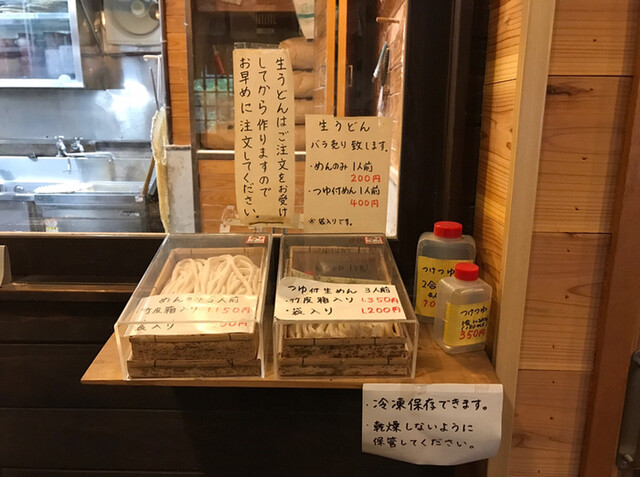 生うどんはご注文をお受け
してから作りますので
お早めに注文してください。
生うどん
バラ売り致します。
・めんのみ1人前
200円
・つゆ付めん1人前
400円
※袋入りです。
めんのみ5人前
・竹皮箱入り 1,150円
・袋入り
つゆ付生めん 3人前
・竹皮箱入り 1,350円
・袋入り 1,200円
つけつゆ
2合
つけつゆ
350円
・冷凍保存できます。
・乾燥しないように
保管してください。